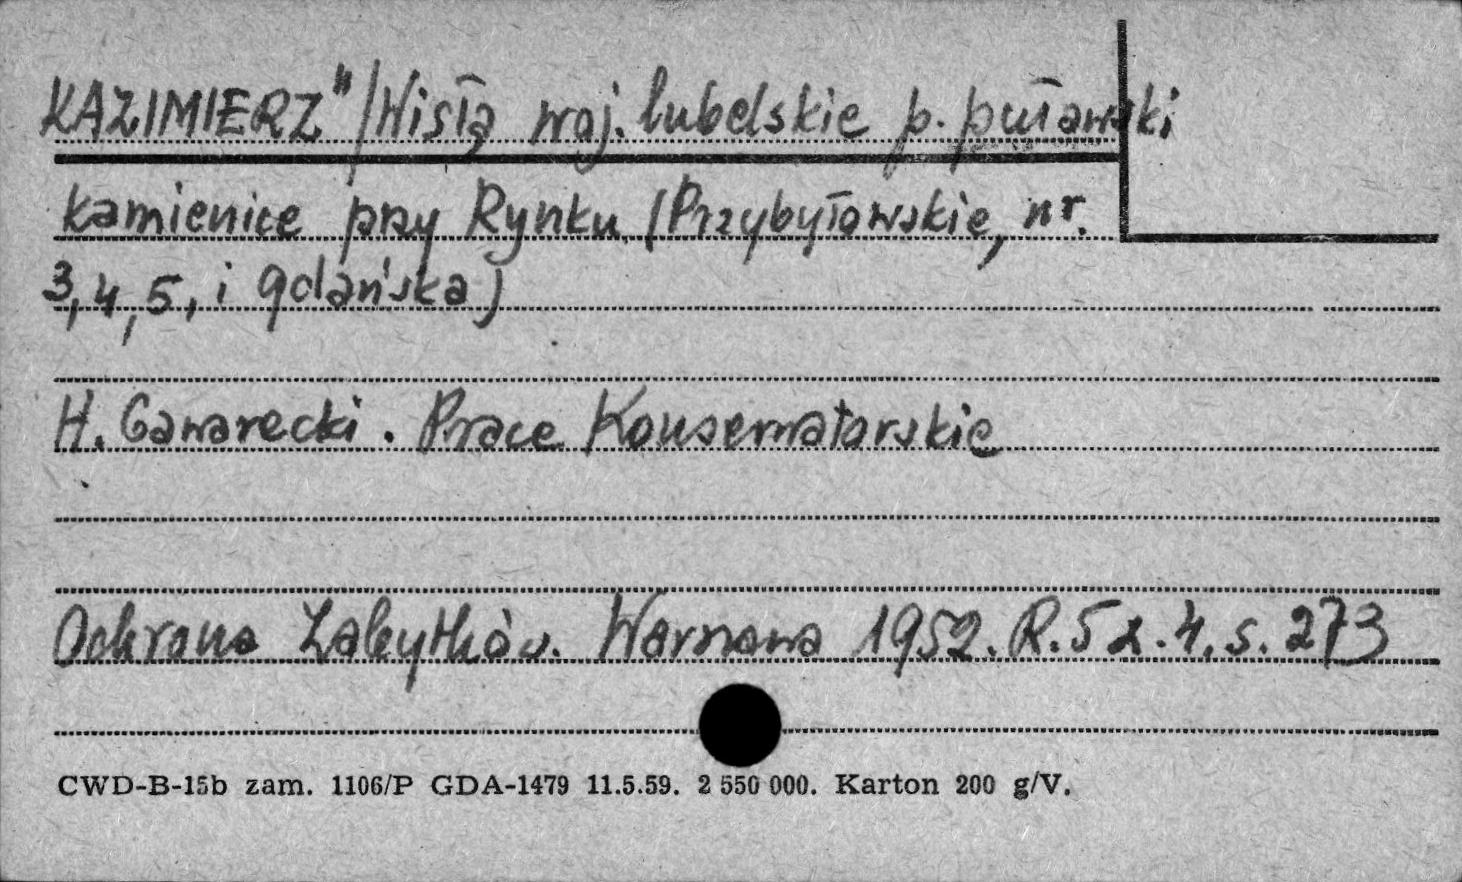 KAZIMIERZ" /Wisłą woj. lubelskie p. puławski
kamienice przy Rynku (Przybyłowskie, nr.
3, 4, 5, i gdańska)
H. Gawarecki. Prace Konserwatorskie
Ochrona Zabytków. Warszawa 1952. R. 5 z. 4. s. 273
CWD-B-15b zam. 1106/P GDA-1479 11.5.59. 2 550 000. Karton 200 g/V.